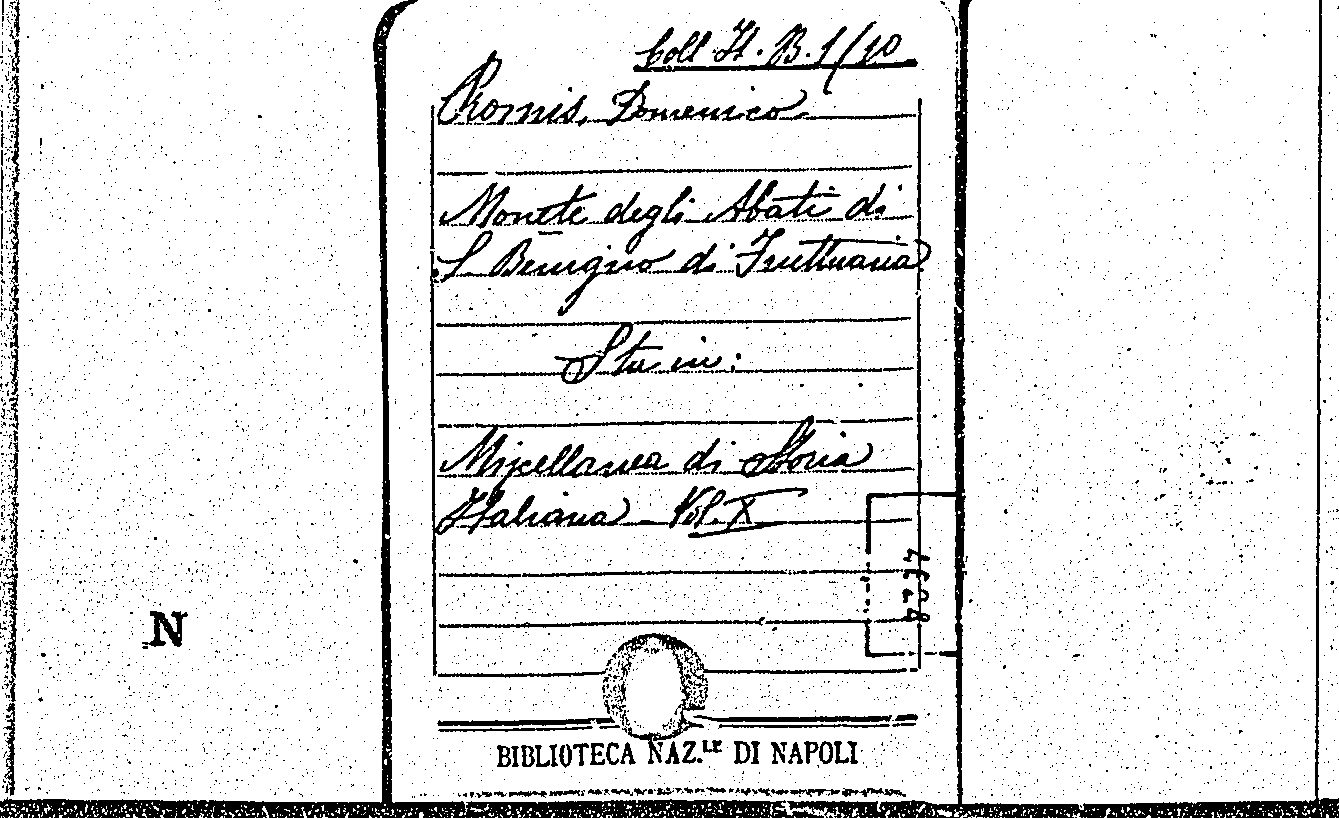 Coll It. B. 1/10
Promis, Domenico
Monete degli Abati di
S. Benigno di Fruttuaria
Sta in:
Miscellanea di Storia
Italiana - Vol. X
N
BIBLIOTECA NAZ.LE DI NAPOLI